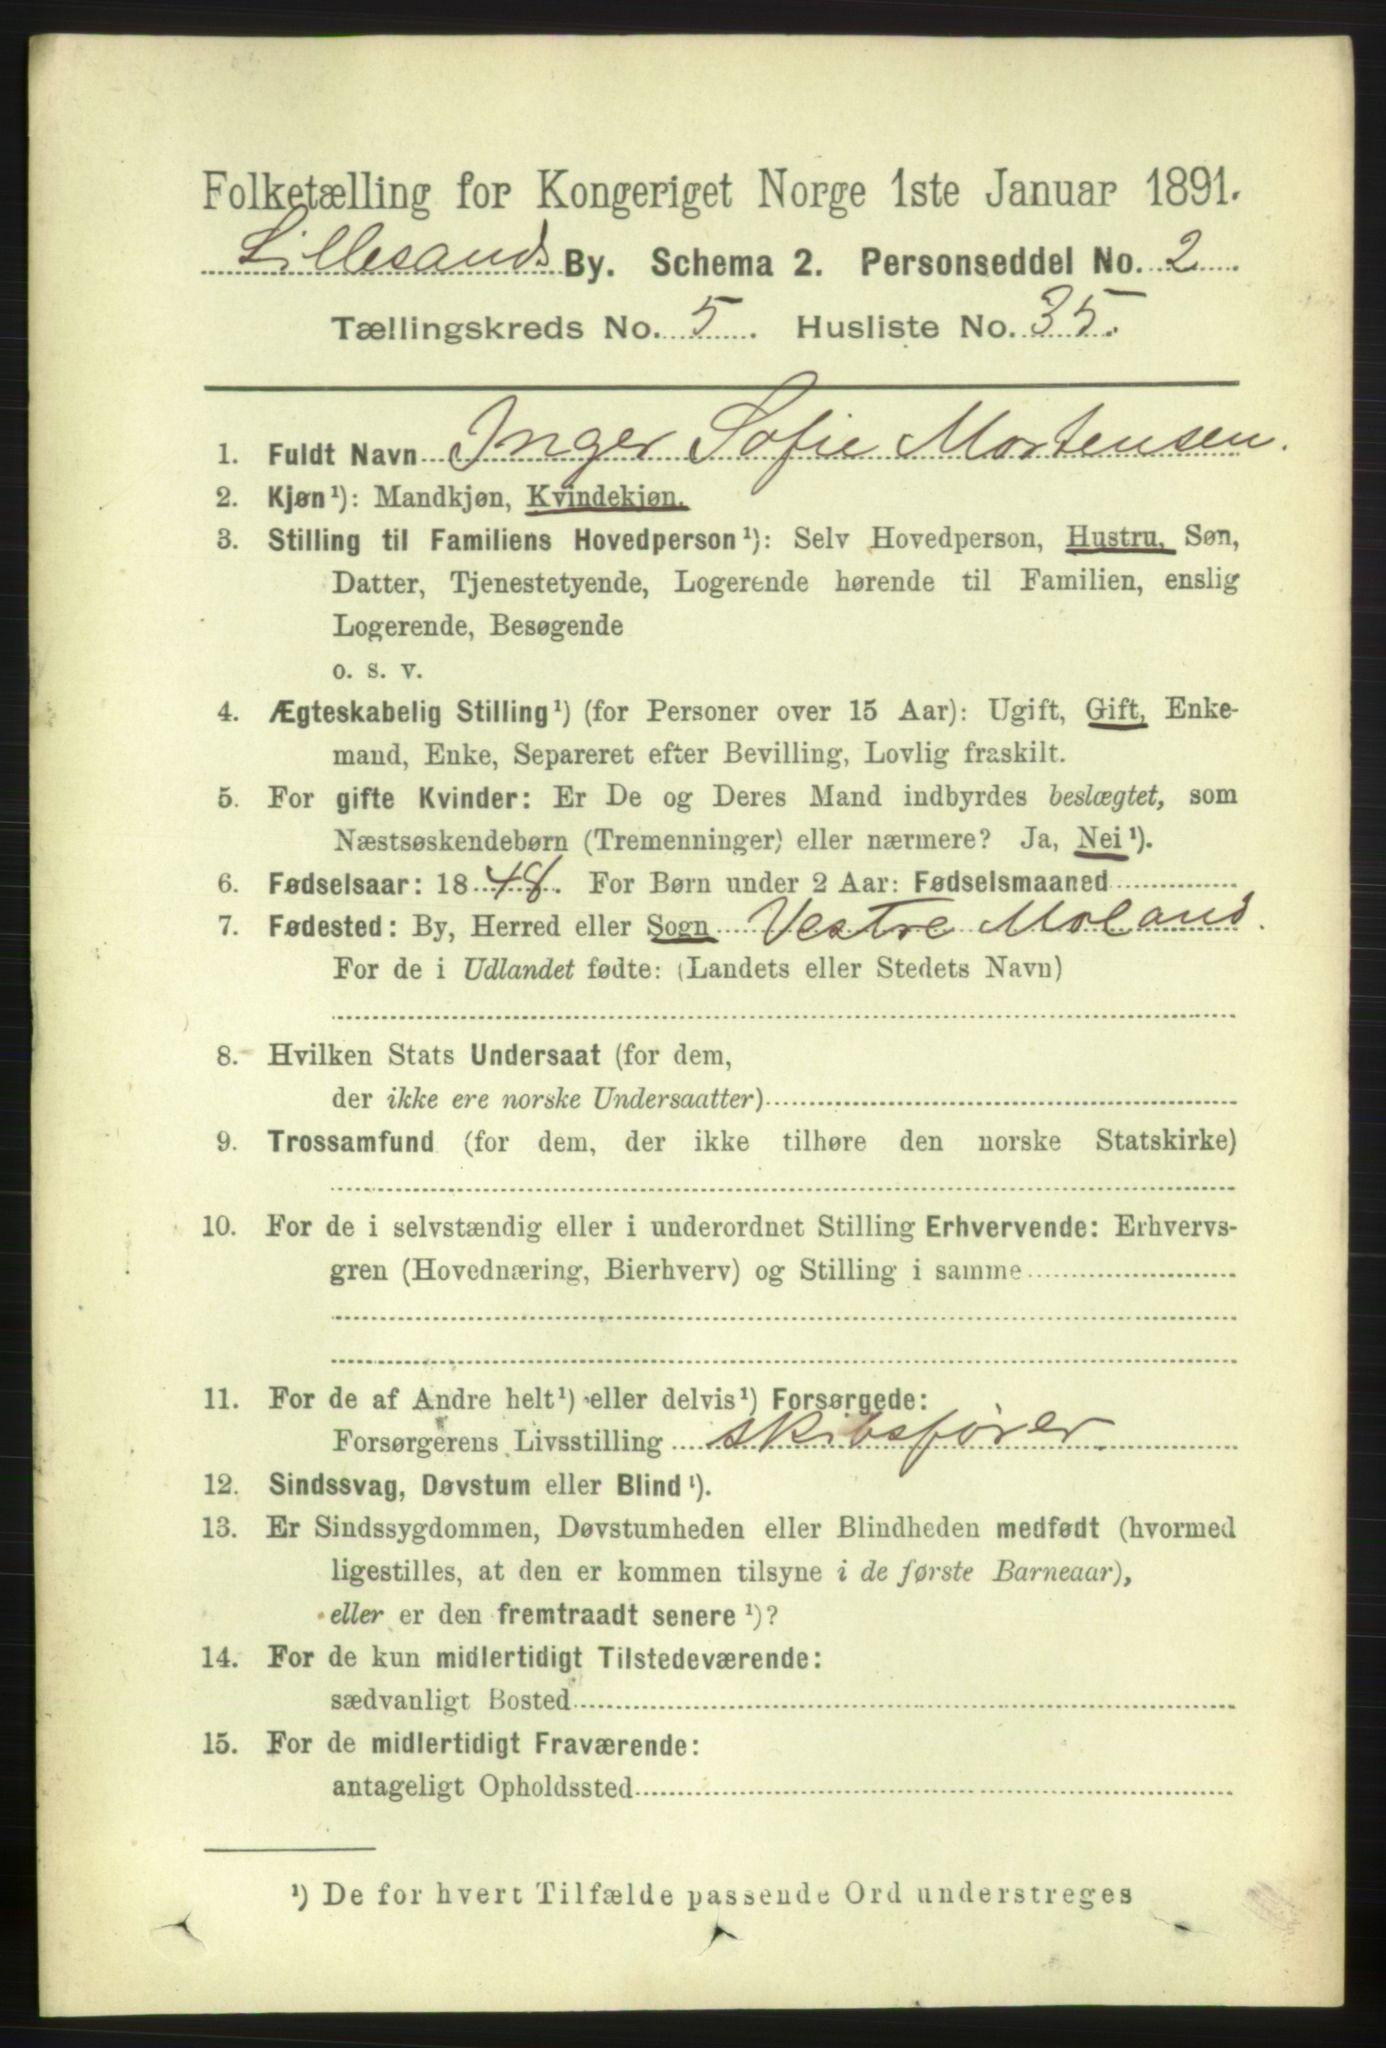 Folketælling for Kongeriget Norge 1ste Januar 1891.
Lillesands By. Schema 2. Personseddel No. 2
Tællingskreds No. 5. Husliste No. 35.
1. Fuldt Navn Inger Sofie Mortensen.
2. Kjøn¹): Mandkjøn, Kvindekjøn.
3. Stilling til Familiens Hovedperson¹): Selv Hovedperson, Hustru, Søn,
Datter, Tjenestetyende, Logerende hørende til Familien, enslig
Logerende, Besøgende
o. s. v.
4. Ægteskabelig Stilling¹) (for Personer over 15 Aar): Ugift, Gift, Enke-
mand, Enke, Separeret efter Bevilling, Lovlig fraskilt.
5. For gifte Kvinder: Er De og Deres Mand indbyrdes beslægtet, som
Næstsøskendebørn (Tremenninger) eller nærmere? Ja, Nei¹).
6. Fødselsaar: 1848. For Børn under 2 Aar: Fødselsmaaned
7. Fødested: By, Herred eller Sogn Vestre Moland.
For de i Udlandet fødte: (Landets eller Stedets Navn)
8. Hvilken Stats Undersaat (for dem,
der ikke ere norske Undersaatter)
9. Trossamfund (for dem, der ikke tilhøre den norske Statskirke)
10. For de i selvstændig eller i underordnet Stilling Erhvervende: Erhvervs-
gren (Hovednæring, Bierhverv) og Stilling i samme
11. For de af Andre helt¹) eller delvis¹) Forsørgede:
Forsørgerens Livsstilling skibsfører.
12. Sindssvag, Døvstum eller Blind¹).
13. Er Sindssygdommen, Døvstumheden eller Blindheden medfødt (hvormed
ligestilles, at den er kommen tilsyne i de første Barneaar),
eller er den fremtraadt senere¹)?
14. For de kun midlertidigt Tilstedeværende:
sædvanligt Bosted
15. For de midlertidigt Fraværende:
antageligt Opholdssted
¹) De for hvert Tilfælde passende Ord understreges